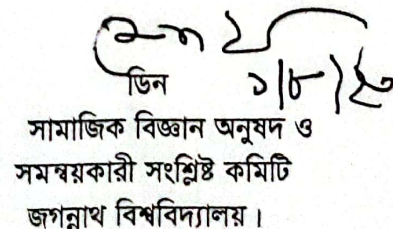 ডিন
সামাজিক বিজ্ঞান অনুষদ ও
সমন্বয়কারী সংশ্লিষ্ট কমিটি
জগন্নাথ বিশ্ববিদ্যালয়।